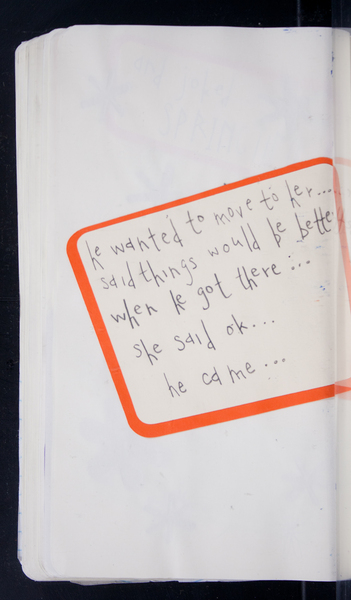 he wanted to move to her....
said things would be bette
when he got there...
she said ok...
he came...